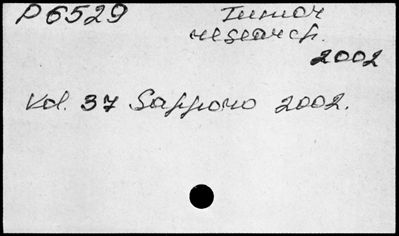 P6529 Tumor
research.
2002
Vol. 37 Sapporo 2002.